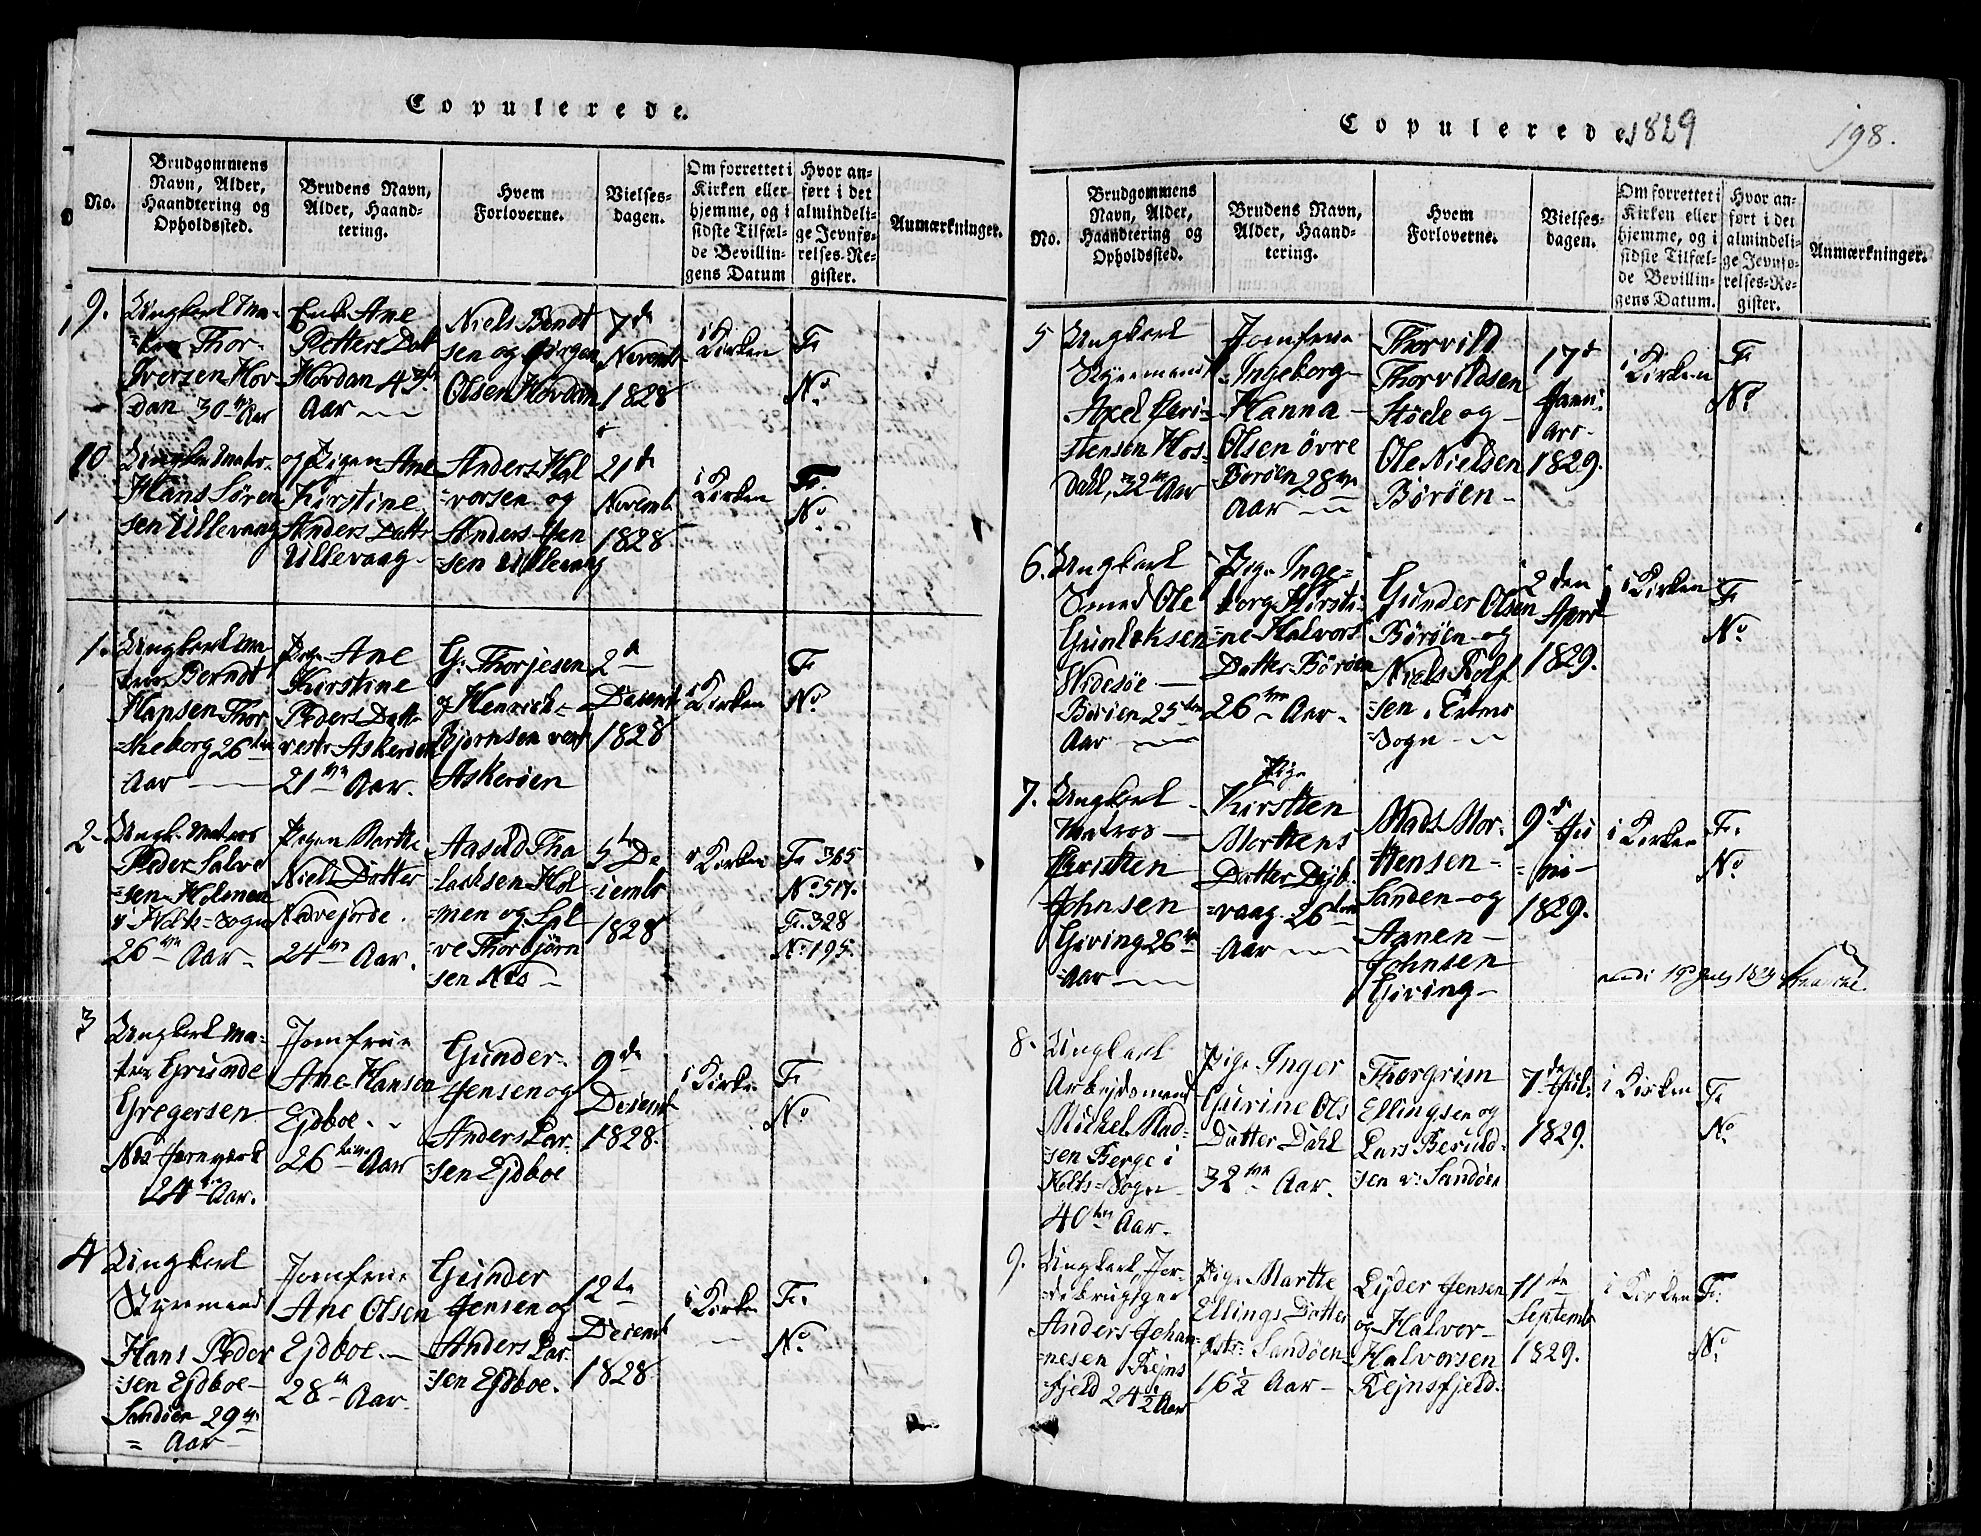 Copulerede.
No.
Brudgommens
Navn, Alder,
Haandtering og
Opholdssted.
Brudens Navn,
Alder, Haand-
tering.
Hvem
Forloverne.
Vielses-
dagen.
Om forrettet i
Kirken eller
hjemme, og i
sidste Tilfæl-
de Bevillin-
gens Datum
Hvor an-
ført i det
almindeli-
ge Jevnfø-
relses-Re-
gister.
Anmærkninger.
9.
Ungkarl
Thor-
Iversen Hov-
dan 30 Aar
Enke Ane
Petters Datt
Hovdan 43
Aar
Niels Berndt
sen og Jørgen
Olsen Hovdan
7de
Novemb
1828
i
Kirken
F.
No.
10
Ungkarl Matr.
Hans Søren
sen Ullevaag
og Pigen Ane
Kirstine
Anders Datt
Ullevaag
Anders Hal
=vorsen og
Anders Jen
sen Ullevaag
21de
Novemb
1828
i
Kirken
F.
No.
1.
Ungkarl Ma
Berndt
Hansen Thor
=neborg 26
Aar
Pige Ane
Kirstine
Peders Datt
vestr Askerøen
21 Aar.
G. Thorjesen
og Henrich
Bjørnsen vest
Askerøen
2de
Decemb
1828
i
Kirken
F
No.
2.
Ungk. Matros
Peder Salve
=sen Holmen
i Næs Sogn
26 Aar
Pigen Marthe
Niels Datter
Nævejorde.
24 Aar.
Aasuld Tha
lacksen Hol
=men og Sal
ve Thorbjørn
sen Næs
5te De
cembr
1828
i Kirken
F. 365
No. 517.
F. 328
No. 195.
3
Ungkarl Ma-
Grunde
Gregersen
Næs Jernværk
24 Aar.
Jomfrue
Ane Hansen
Ejdboe.
26 Aar
Gunder
Jensen og
Anders Lar
=sen Ejdboe
9de
Decemb
1828.
i Kirken
F.
No.
4
Ungkarl
Styrmand
Hans Peder
=sen Ejdboe
Sandøen 29
= Aar
Jomfrue
Ane Olsen
Ejdboe.
28 Aar.
Gunder
Jensen og
Anders Lar
sen Ejdboe.
12te
Decemb
1828
i Kirken
F.
No.
Copulerede 1829
198.
No.
Brudgommens
Navn, Alder,
Haandtering og
Opholdssted.
Brudens Navn,
Alder, Haand-
tering.
Hvem
Forloverne.
Vielses-
dagen.
Om forrettet i
Kirken eller
hjemme, og i
sidste Tilfæl-
de Bevillin-
gens Datum.
Hvor an-
ført i det
almindeli-
ge Jevnfø-
relses-Re-
gister.
Anmærkninger.
5
Ungkarl
Styrmand
Axel Chri=
stensen Hos
Dahl, 32 Aar
Jomfrue
Ingeborg
Hanna
Olsen øvre
Borøen 28
Aar
Thorvild
Thorvildsen
Støle og
Ole Nielsen
Børøen
17de
Janu
ar
1829.
i
Kirken
F
No.
6.
Ungkarl
Smed Ole
Gunlaksen
Widesøe
Børøen 25
Aar
Pige Inge=
borg Kirsti
=ne Halvors
Datter Børøen
26 Aar
Gunder Olsen
Børøen og
Niels Rolf
sen
Sogn
2den
April
1829.
i Kirken
F
No.
7.
Ungkarl
Matros
Christen
Johnsen
Giving 26
Aar
Pige
Kirsten
Mortens
Datter Dyb
=vaag 26
Aar
Mads Mor
tensen
Sanden og
Aanen
Johnsen
Giving
9de Ju
=ni
1829.
i Kirken
F.
No.
8.
Ungkarl
Arbejdsmand
Mickel Mad
sen Berge i
Holts Sogn
40 Aar
Pige Inger
Gurine Ols
Datter Dahl
32 Aar.
Thorgrim
Ellingsen og
Lars Beruld
sen v: Sandøen
7de Jul.
1829.
i Kirken
F.
No.
9.
Ungkarl, Jor-
debrugiger
Anders Johan
=nesen Rejns
fjeld 24 1/2 Aar
Pige Marthe
Ellings Datter
østr. Sandøen
16 1/2 Aar
Lyder Jensen
og Halvor
Halvorsen
Rejnsfjeld.
11te
Septemb
1829.
i Kirken
F.
No.